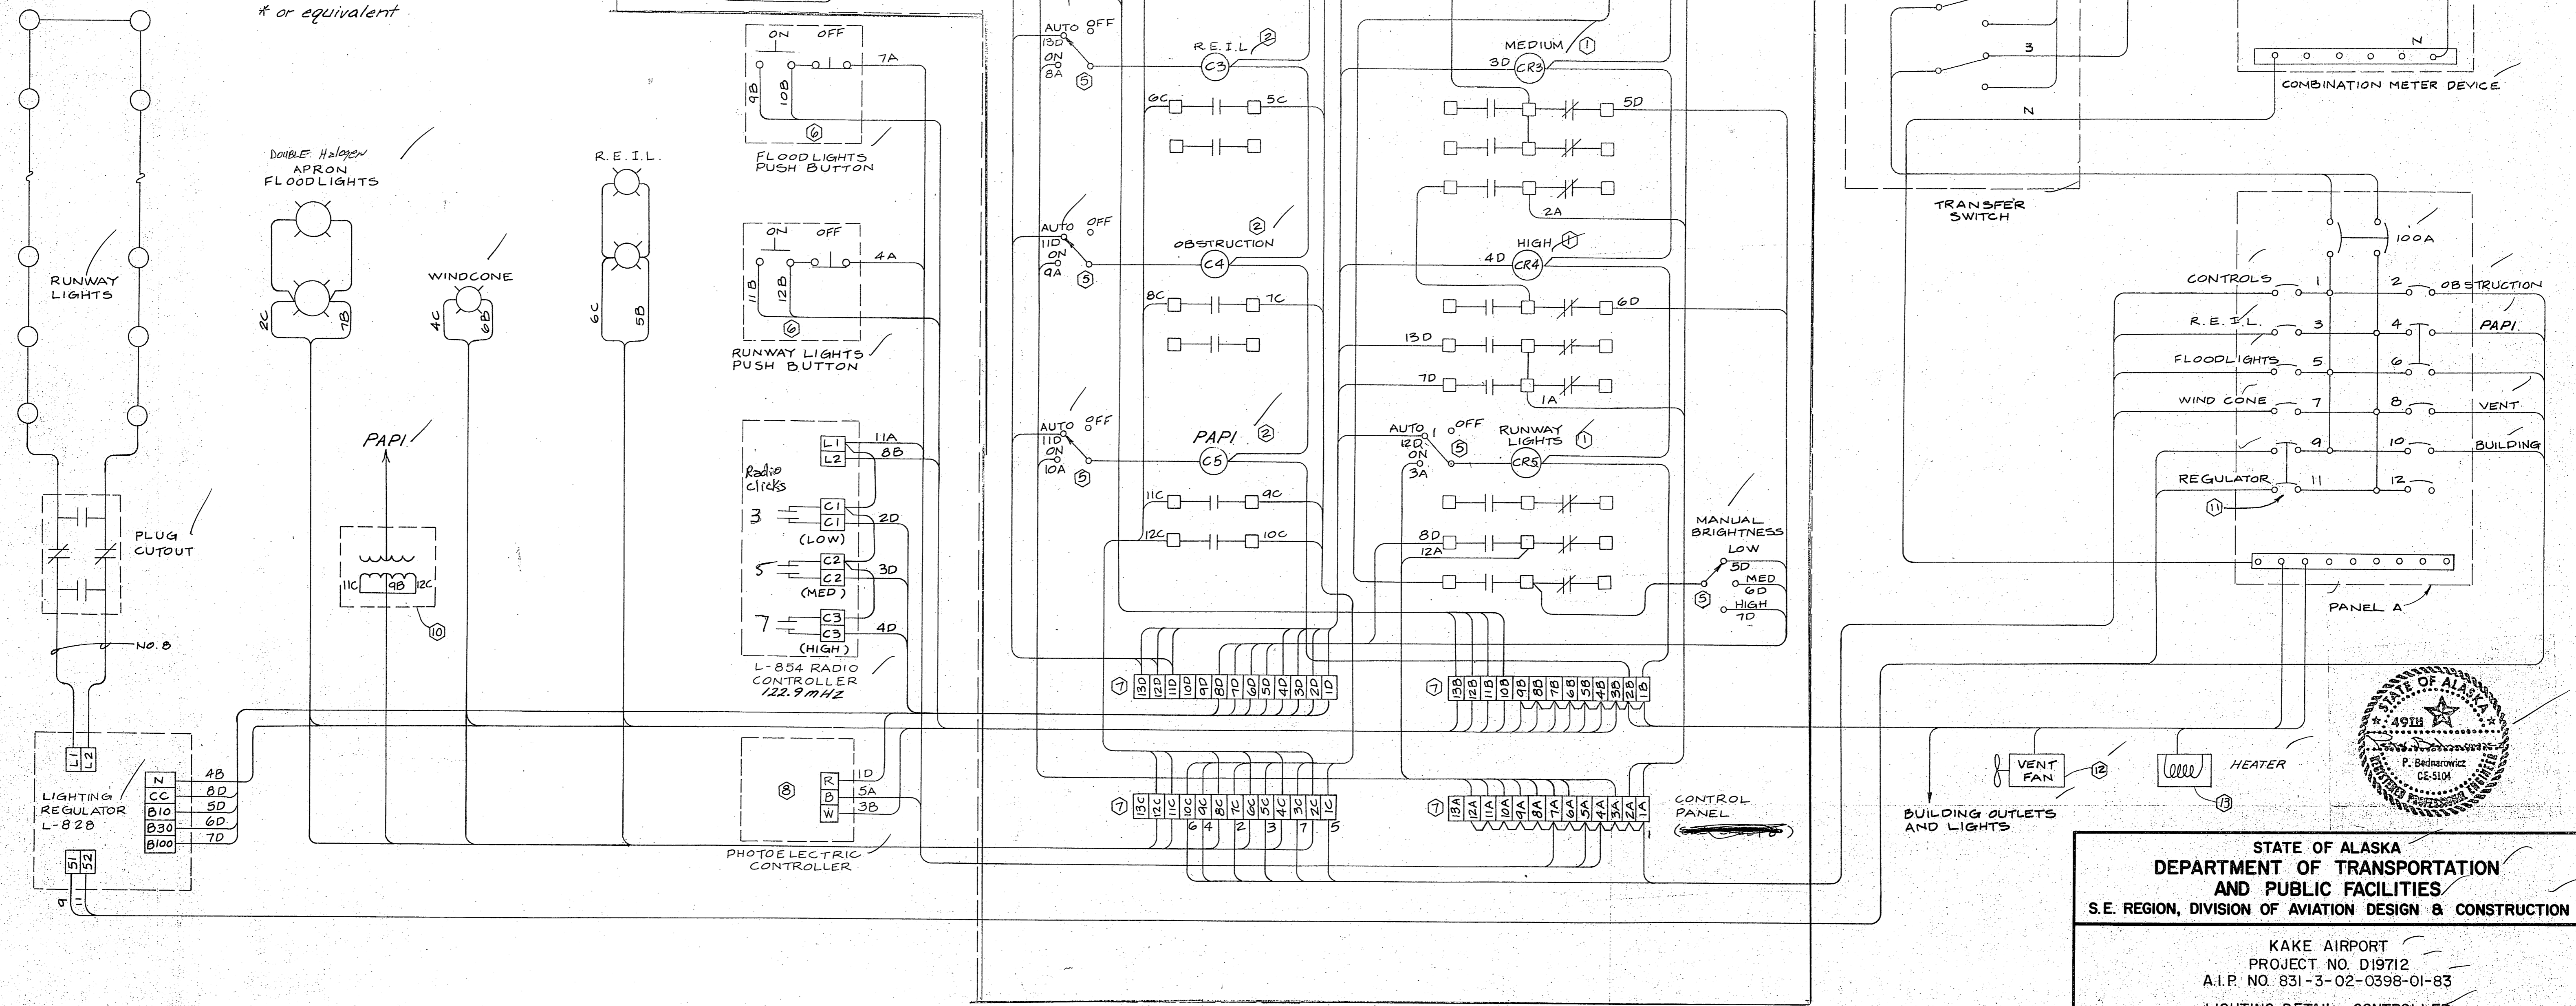 * or equivalent
RUNWAY
LIGHTS
PLUG
CUTOUT
NO. 8
L1
L2
LIGHTING
REGULATOR
L-828
N
CC
B10
B30
B100
4B
8D
5D
6D
7D
S1
S2
9
11
DOUBLE Halogen
APRON
FLOODLIGHTS
2C
7B
PAPI
11C
9B
12C
10
WINDCONE
4C
6B
R.E.I.L.
6C
5B
ON OFF
7A
9B
10B
6
FLOODLIGHTS
PUSH BUTTON
ON OFF
4A
11B
12B
6
RUNWAY LIGHTS
PUSH BUTTON
L1
L2
11A
8B
Radio
clicks
3
C1
C1
2D
(LOW)
5
C2
C2
3D
(MED)
7
C3
C3
4D
(HIGH)
L-854 RADIO
CONTROLLER
122.9 mHz
8
R
B
W
1D
5A
3B
PHOTOELECTRIC
CONTROLLER
AUTO OFF
13D
ON
8A
5
R.E.I.L. 2
C3
6C
5C
AUTO OFF
11D
ON
9A
5
2
OBSTRUCTION
C4
8C
7C
AUTO OFF
11D
ON
10A
5
PAPI 2
C5
11C
9C
12C
10C
MEDIUM 1
3D
CR3
5D
2A
HIGH 1
4D
CR4
6D
13D
7D
1A
AUTO OFF
12D
ON
3A
5
RUNWAY
LIGHTS 1
CR5
8D
12A
MANUAL
BRIGHTNESS
LOW
5D
MED
6D
HIGH
7D
5
7
13D 12D 11D 10D 9D 8D 7D 6D 5D 4D 3D 2D 1D
7
13B 12B 11B 10B 9B 8B 7B 6B 5B 4B 3B 2B 1B
7
13C 12C 11C 10C 9C 8C 7C 6C 5C 4C 3C 2C 1C
6 4 2 3 7 5
7
13A 12A 11A 10A 9A 8A 7A 6A 5A 4A 3A 2A 1A
1
CONTROL
PANEL
3
N
TRANSFER
SWITCH
N
COMBINATION METER DEVICE
100A
CONTROLS 1
2 OBSTRUCTION
R.E.I.L. 3
4 PAPI
FLOODLIGHTS 5
6
WIND CONE 7
8 VENT
9
10 BUILDING
REGULATOR 11
12
11
PANEL A
VENT
FAN
12
HEATER
13
BUILDING OUTLETS
AND LIGHTS
STATE OF ALASKA
49TH
P. Bednarowicz
CE-5104
REGISTERED PROFESSIONAL ENGINEER
STATE OF ALASKA
DEPARTMENT OF TRANSPORTATION
AND PUBLIC FACILITIES
S.E. REGION, DIVISION OF AVIATION DESIGN & CONSTRUCTION
KAKE AIRPORT
PROJECT NO. D19712
A.I.P. NO. 831-3-02-0398-01-83
LIGHTING DETAIL - CONTROLLER